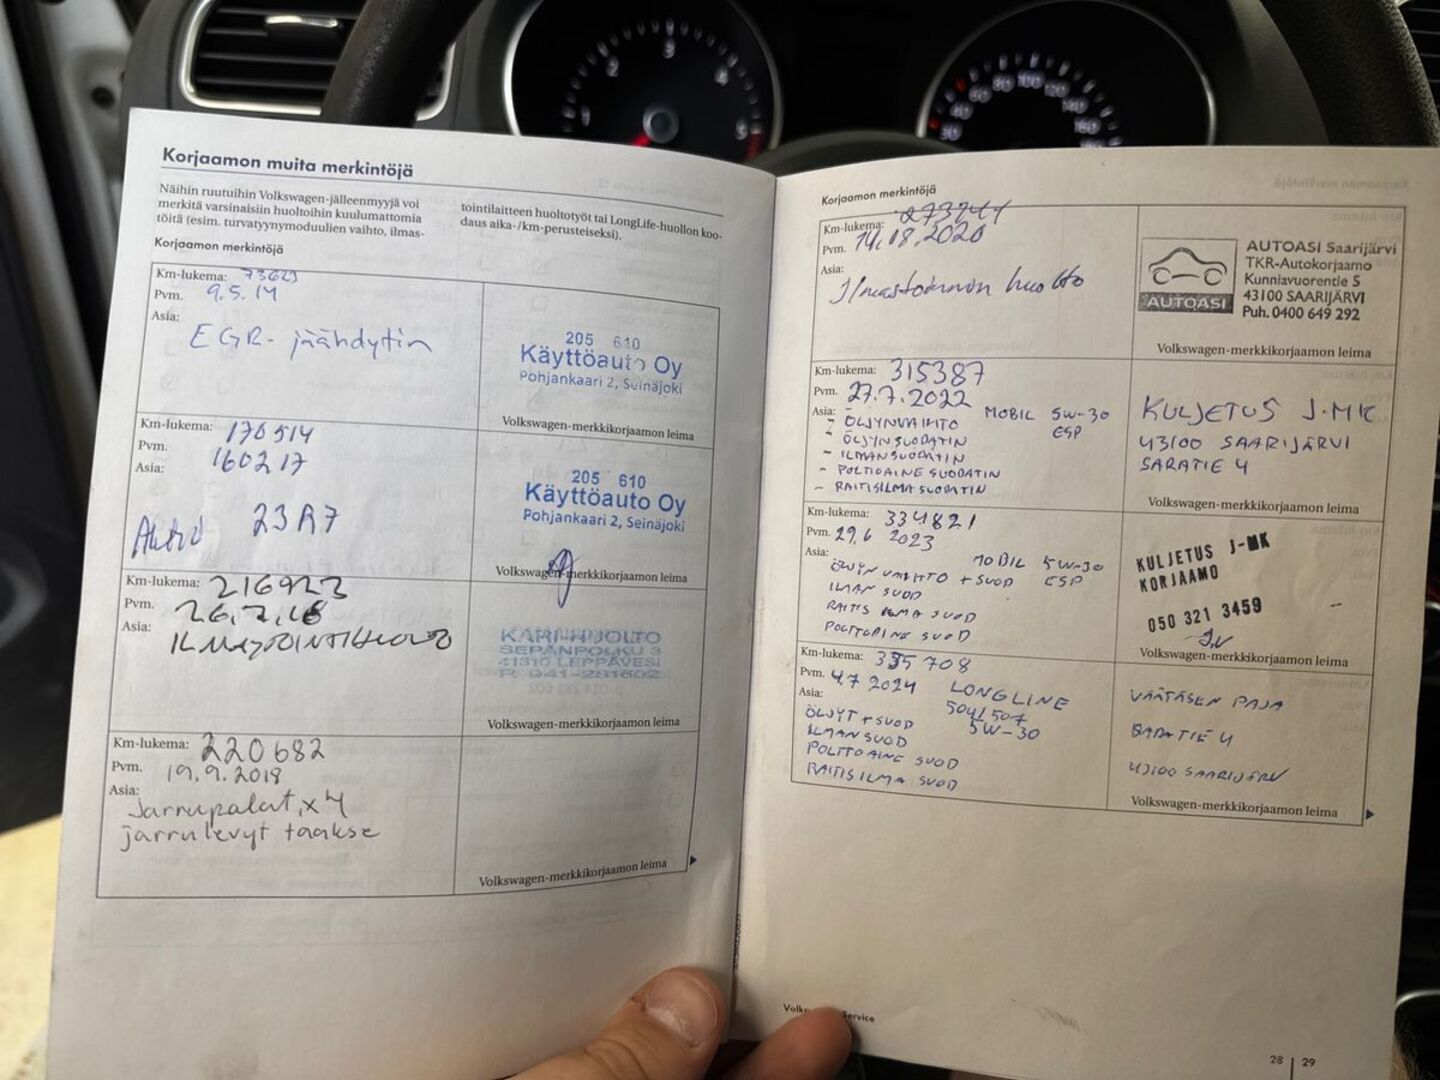 Korjaamon muita merkintöjä
Näihin ruutuihin Volkswagen-jälleenmyyjä voi
merkitä varsinaisiin huoltoihin kuulumattomia
töitä (esim. turvatyynymoduulien vaihto, ilmas-
tointilaitteen huoltotyöt tai LongLife-huollon koo-
daus aika-/km-perusteiseksi).
Korjaamon merkintöjä
Km-lukema:
Pvm. 9.5.14
Asia:
EGR-jäähdytin
205 610
Käyttöauto Oy
Pohjankaari 2, Seinäjoki
Volkswagen-merkkikorjaamon leima
Km-lukema: 176514
Pvm. 160217
Asia:
23A7
205 610
Käyttöauto Oy
Pohjankaari 2, Seinäjoki
Volkswagen-merkkikorjaamon leima
Km-lukema: 216923
Pvm.
Asia:
KARI-HUOLTO
SEPÄNPOLKU 3
41310 LEPPÄVESI
P. 041-281602
Volkswagen-merkkikorjaamon leima
Km-lukema: 220682
Pvm. 19.9.2018
Asia:
Jarrupalat x4
jarrulevyt taakse
Volkswagen-merkkikorjaamon leima
Korjaamon merkintöjä
Km-lukema:
Pvm. 14.08.2020
Asia:
Ilmastoinnin huolto
AUTOASI
AUTOASI Saarijärvi
TKR-Autokorjaamo
Kunniavuorentie 5
43100 SAARIJÄRVI
Puh. 0400 649 292
Volkswagen-merkkikorjaamon leima
Km-lukema: 315387
Pvm. 27.7.2022
Asia: MOBIL 5W-30
- ÖLJYNVAIHTO ESP
- ÖLJYNSUODATIN
- ILMANSUODATIN
- POLTTOAINESUODATIN
- RAITISILMASUODATIN
KULJETUS J-MK
43100 SAARIJÄRVI
SARATIE 4
Volkswagen-merkkikorjaamon leima
Km-lukema: 334821
Pvm. 29.6 2023
Asia: MOBIL 5W-30
ÖLJYN VAIHTO + SUOD ESP
ILMAN SUOD
RAITIS ILMA SUOD
POLTTOAINE SUOD
KULJETUS J-MK
KORJAAMO
050 321 3459
Volkswagen-merkkikorjaamon leima
Km-lukema: 355708
Pvm. 4.7 2024 LONGLINE
Asia: 504/507
ÖLJYT + SUOD 5W-30
ILMAN SUOD
POLTTOAINE SUOD
RAITISILMA SUOD
VÄÄTÄSEN PAJA
SARATIE 4
43100 SAARIJÄRVI
Volkswagen-merkkikorjaamon leima
28 | 29
1 2 3 4 5